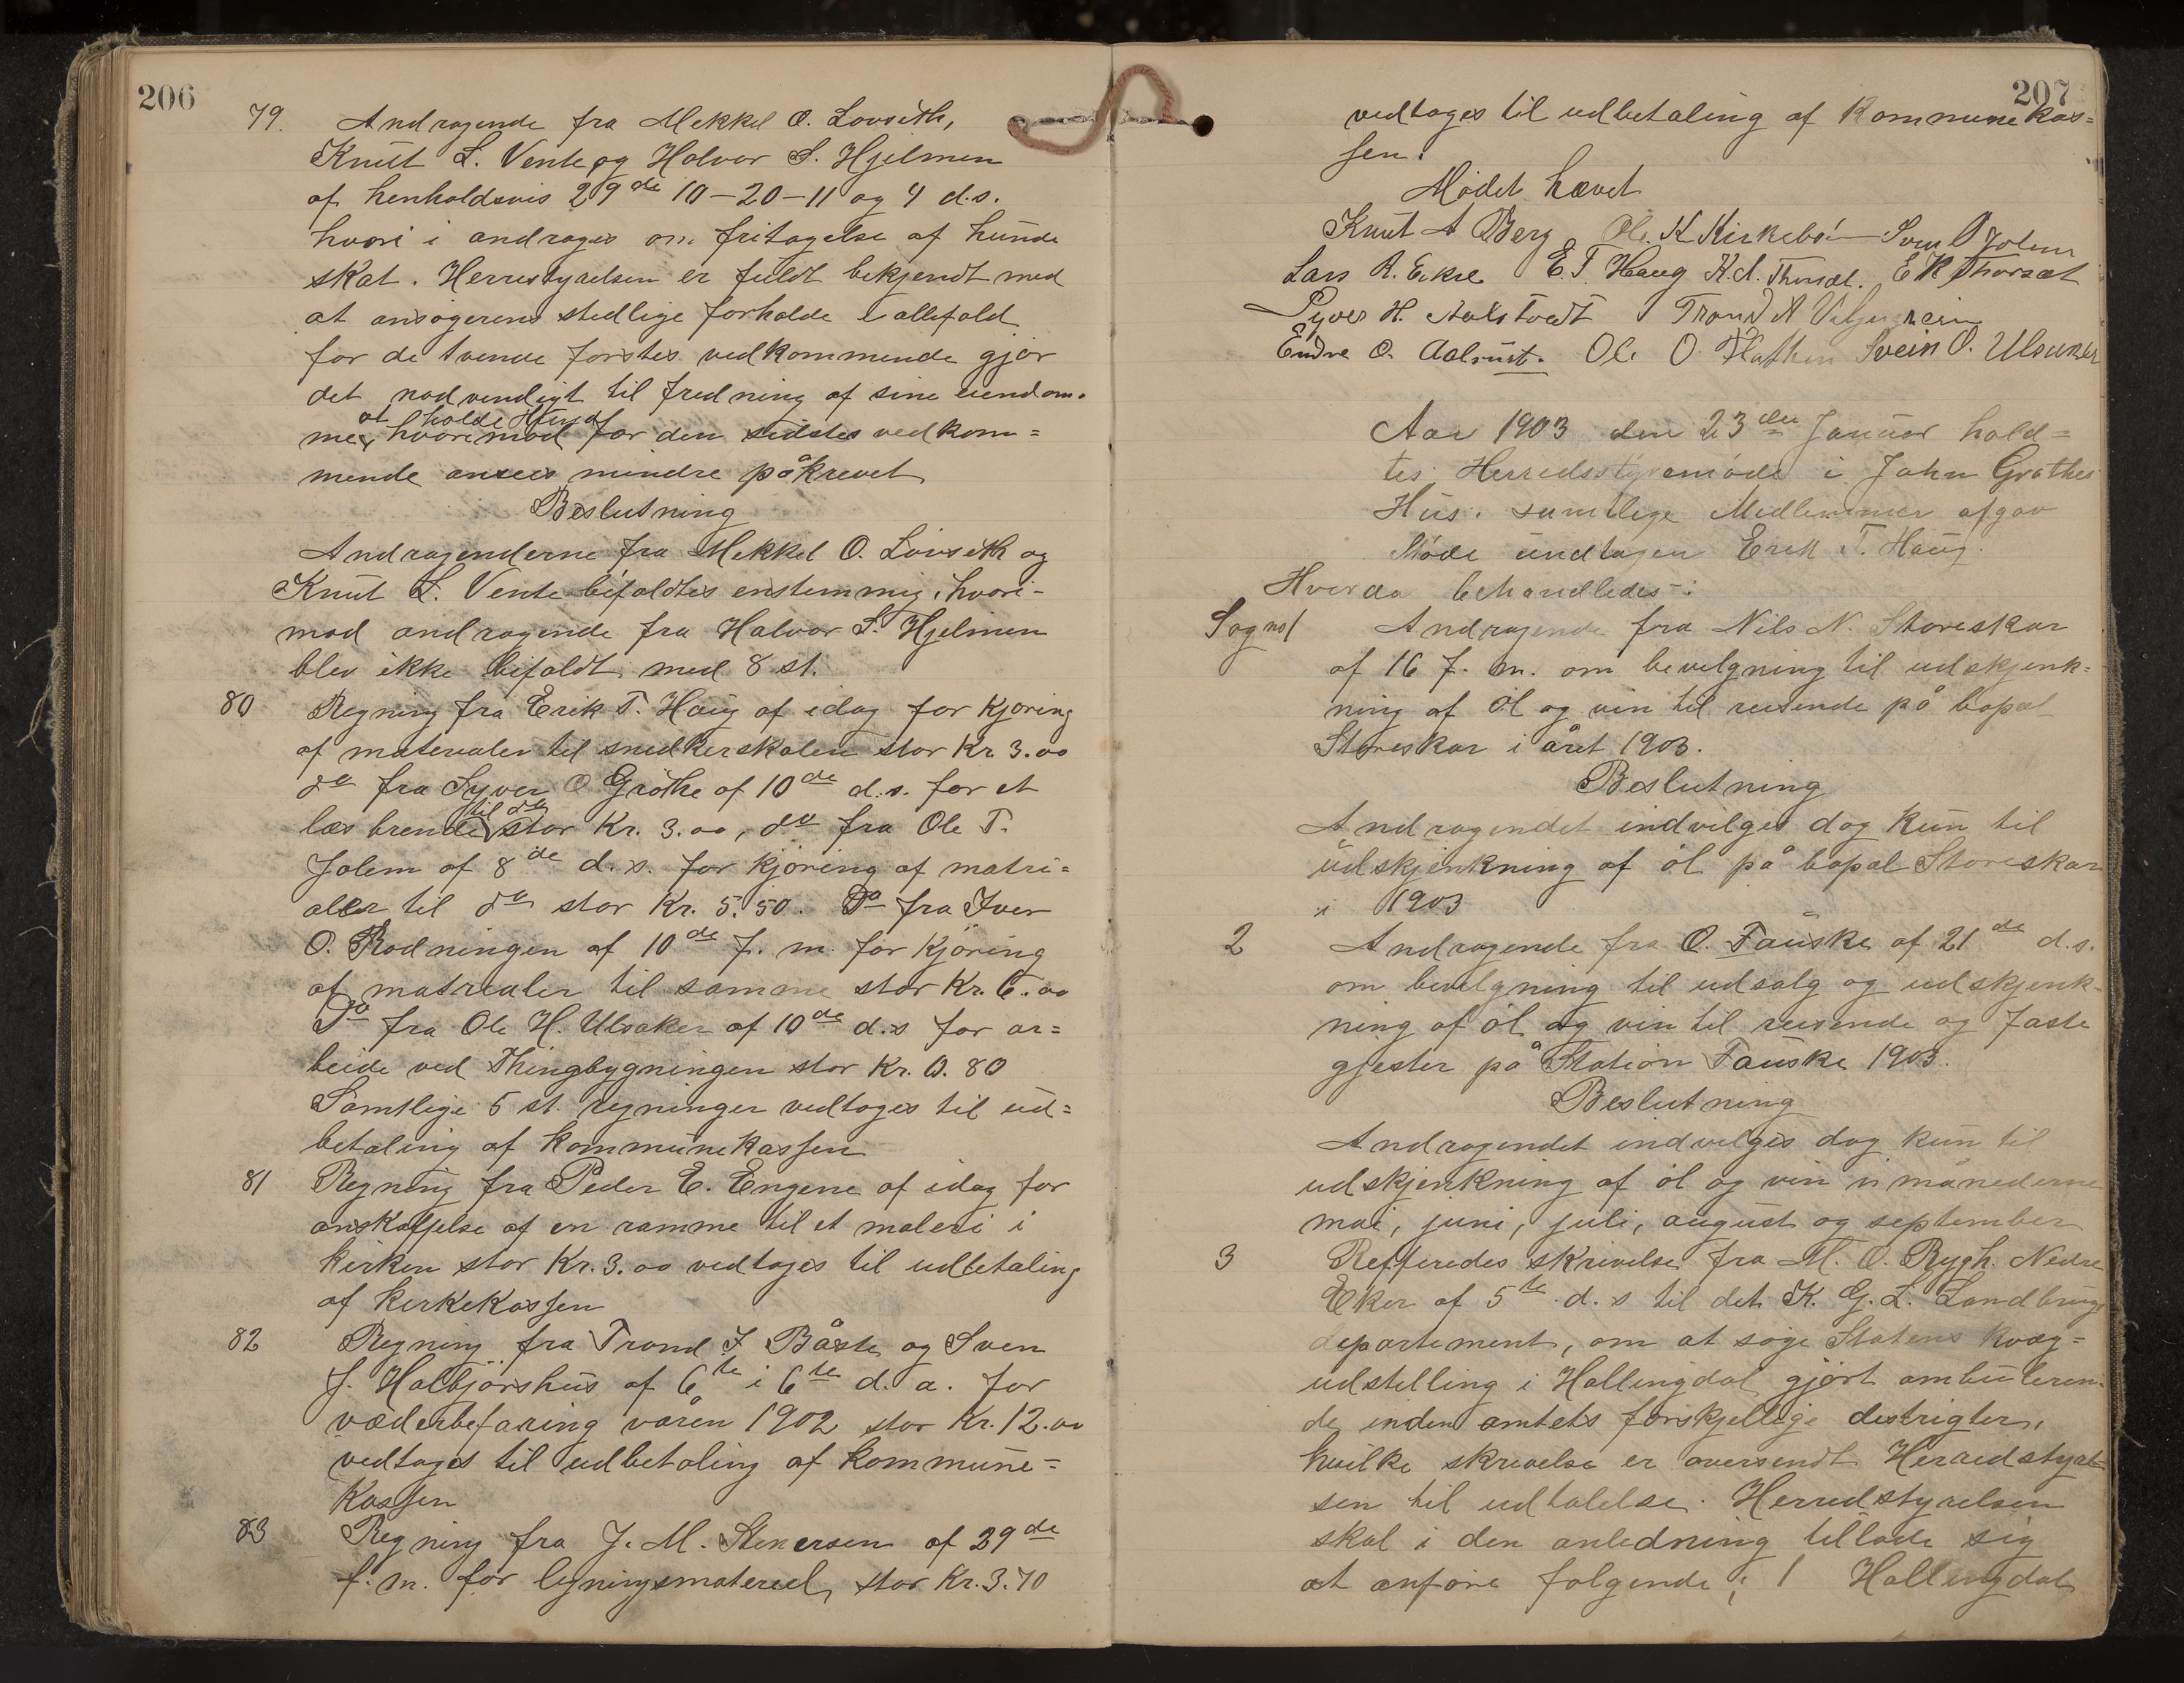 206
79. Andragende fra Mekkel O. Lovseth,
Knut L. Vente og Halvor S. Hjelmen
af henholdsvis 29de 10-20-11 og 4 d.s.
hvori i andrages om fritagelse af hunde
skat. Herrestyrelsen er fuldt bekjendt med
at ansøgerens stedlige forholde i allefald
for de tvende førstes vedkommende gjør
det nødvendigt til fredning af sine eiendom-
me, at holde Hund hvorimod for den sidstes vedkom=
mende ansees mindre påkrevet
Beslutning
Andragenderne fra Mekkel O. Lovseth og
Knut L. Vente bifaldtes enstemmig, hvori-
mod andragende fra Halvor S. Hjelmen
blev ikke bifaldt med 8 st.
80 Regning fra Erik T. Haug af idag for kjøring
af materialer til snedkerskolen stor Kr. 3.00
do fra Syver O Grøthe af 10de d.s. for et
læs brende til do stor Kr. 3.00, do fra Ole T.
Jolem af 8de d.s. for kjøring af matri=
aller til do stor Kr. 5.50. Do fra Iver
O. Rodningen af 10de f. m. for kjøring
af matrealer til samme stor Kr. 6.00
Do fra Ole H. Ulsaker af 10de d.s for ar=
beide ved Thingbygningen stor Kr. 0.80
Samtlige 5 st. regninger vedtages til ud=
betaling af kommunekassen
81 Regning fra Peder E. Engene af idag for
anskaffelse af en ramme til et maleri i
kirken stor Kr. 3.00 vedtages til udbetaling
af kirkekassen
82 Regning fra Trond I. Båste og Sven
J. Halbjørshus af 6te i 6te d. a. for
væderbefaring våren 1902 stor Kr. 12.00
vedtages til udbetaling af kommune=
kassen
83 Regning fra J. M. Stenersen af 29de
f. m. for ligningsmateriel, stor Kr. 3.70
207
vedtages til udbetaling af Kommunekas=
sen.
Mødet hævet
Knut A Berg Ole K Kirkebø Sven O Jolem
Lars R. Ekre E. T. Haug K. A. Thorsæt. E K Thorsæt
Syver H. Aalstvedt Trond A
Endre O. Aalrust. Ole O. Flathen Svein O. Ulsaker
Aar 1903 den 23de Januar hold=
tes Herredsstyremøde i John Grøthes
Hus. samtlige Medlemmer afgav
Møde undtagen Erik T. Haug.
Hver da behandledes:
Sag no 1 Andragende fra Nils N. Storeskar
af 16 f. m. om bevilgning til udskjenk=
ning af öl og vin til reisende på bopæl
Storeskar i året 1903.
Beslutning
Andragendet indvilges dog kun til
udskjenkning af öl på bopæl Storeskar
i 1903
2 Andragende fra O. Fauske af 21de d.s.
om bevilgning til udsalg og udskjenk-
ning af öl og vin til reisende og faste
gjester på Station Fauske 1903.
Beslutning
Andragendet indvilges dog kun til
udskjenkning af öl og vin i månederne
mai, juni, juli, august og september
3 Refferedes skrivelse fra M. O. Rygh. Nedre
Eker af 5te d.s til det K. G. L. Landbrugs
departement, om at søge Statens kvæg=
udstilling i Hallingdal gjørt ambuleren-
de inden amtets forskjellige destrigter,
hvilke skrivelse er oversendt Herredstyrel=
sen til udtalelse. Herredstyrelsen
skal i den anledning tillade sig
at anføre følgende; 1 Hallingdal